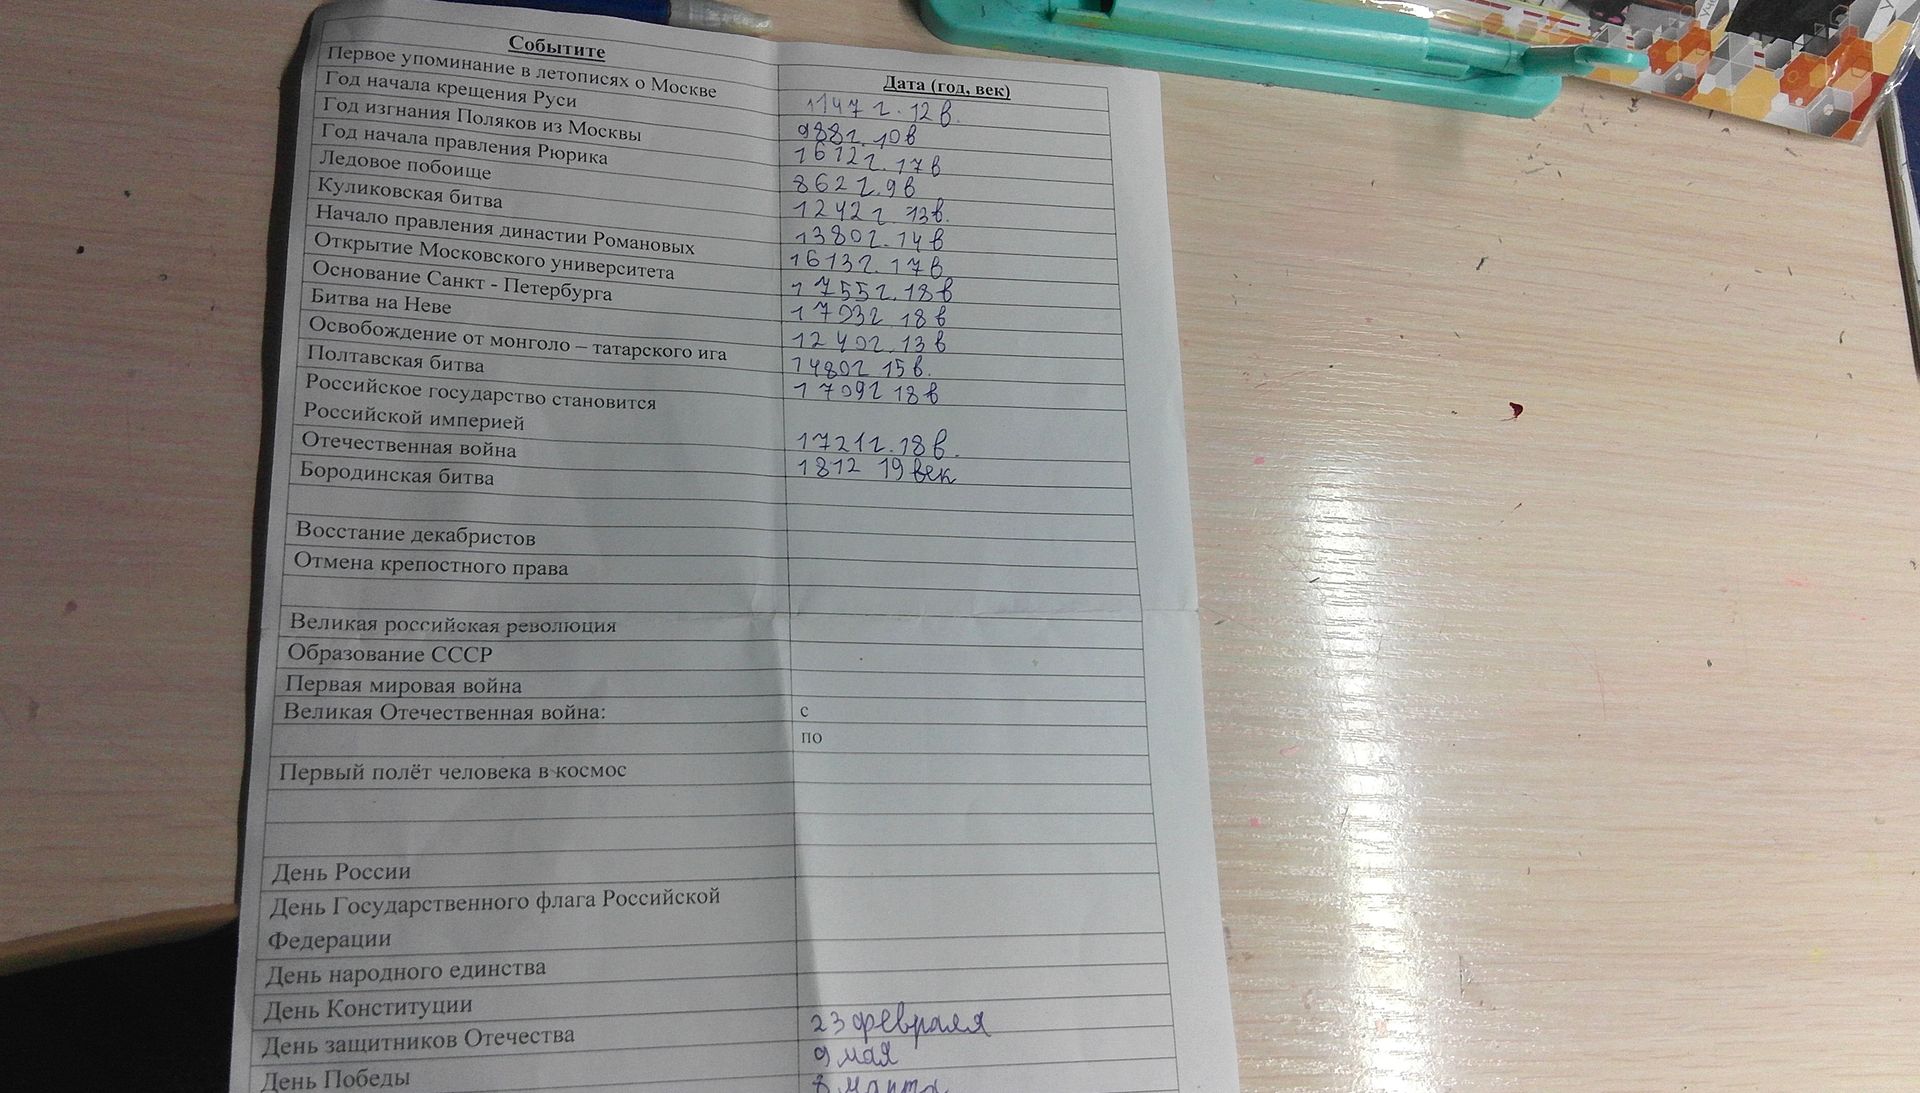 Событите Дата (год, век)
Первое упоминание в летописях о Москве 1147 г. 12 в.
Год начала крещения Руси 988г. 10 в
Год изгнания Поляков из Москвы 1612г. 17 в
Год начала правления Рюрика 862 г. 9 в
Ледовое побоище 1242 г 13в.
Куликовская битва 1380г. 14 в
Начало правления династии Романовых 1613г. 17 в
Открытие Московского университета 1755г. 18 в
Основание Санкт - Петербурга 1703г 18 в
Битва на Неве 1240г. 13 в
Освобождение от монголо – татарского ига 1480г 15 в.
Полтавская битва 1709г 18 в
Российское государство становится
Российской империей 1721г. 18 в.
Отечественная война 1812 19 век
Бородинская битва
Восстание декабристов
Отмена крепостного права
Великая российская революция
Образование СССР
Первая мировая война
Великая Отечественная война: с
по
Первый полёт человека в космос
День России
День Государственного флага Российской
Федерации
День народного единства
День Конституции
День защитников Отечества 23 февраля
День Победы 9 мая
8 марта